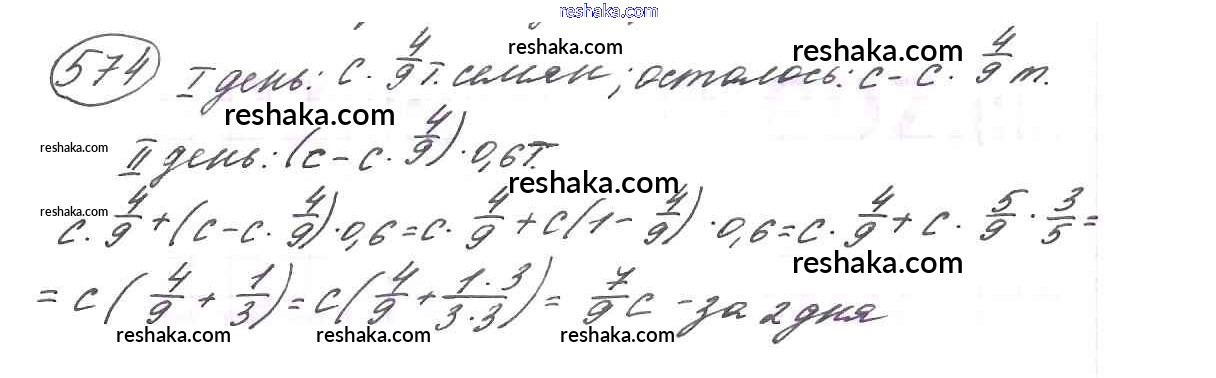 reshaka.com
574 I день: c · 4/9 т. семян; осталось: c - c · 4/9 т.
reshaka.com reshaka.com
reshaka.com
II день: (c - c · 4/9) · 0,6 т.
reshaka.com reshaka.com
c · 4/9 + (c - c · 4/9) · 0,6 = c · 4/9 + c(1 - 4/9) · 0,6 = c · 4/9 + c · 5/9 · 3/5 =
reshaka.com
reshaka.com
= c (4/9 + 1/3) = c (4/9 + 1·3/3·3) = 7/9 c - за 2 дня
reshaka.com reshaka.com reshaka.com